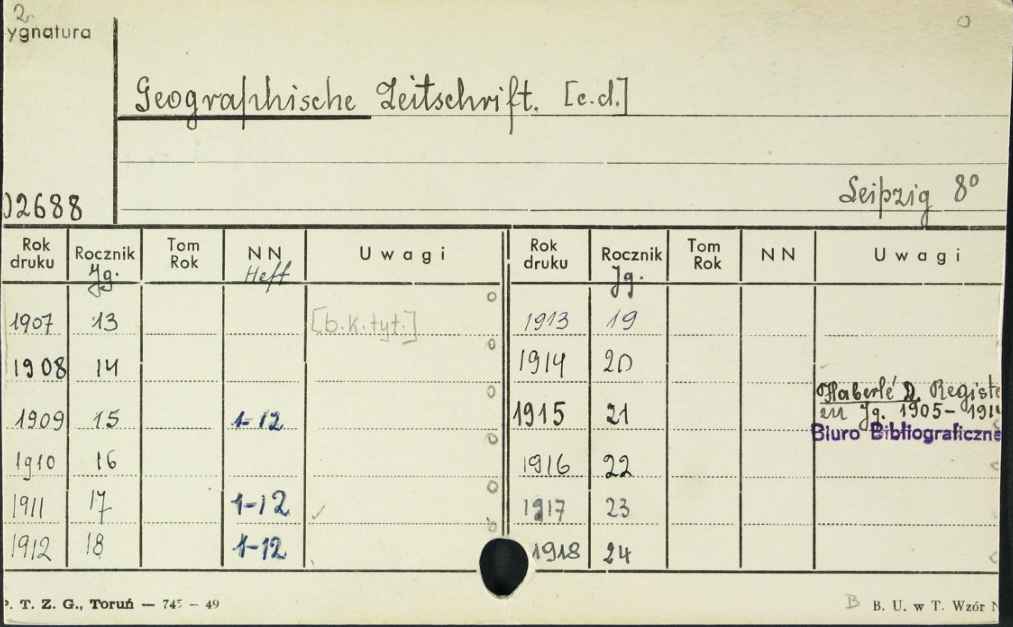 2
ygnatura
o
Geographische Zeitschrift. [c.d.]
Leipzig 8º
02688
Rok druku Rocznik Jg. Tom Rok NN Heft Uwagi Rok druku Rocznik Jg. Tom Rok NN Uwagi
1907 13 [b.k.tyt.] 1913 19
1908 14 1914 20
1909 15 1-12 1915 21 Haberlé D. Registe
zu Jg. 1905-1914
Biuro Bibliograficzne
1910 16 1916 22
1911 17 1-12 1917 23
1912 18 1-12 1918 24
P. T. Z. G., Toruń — 745 — 49
B B. U. w T. Wzór N